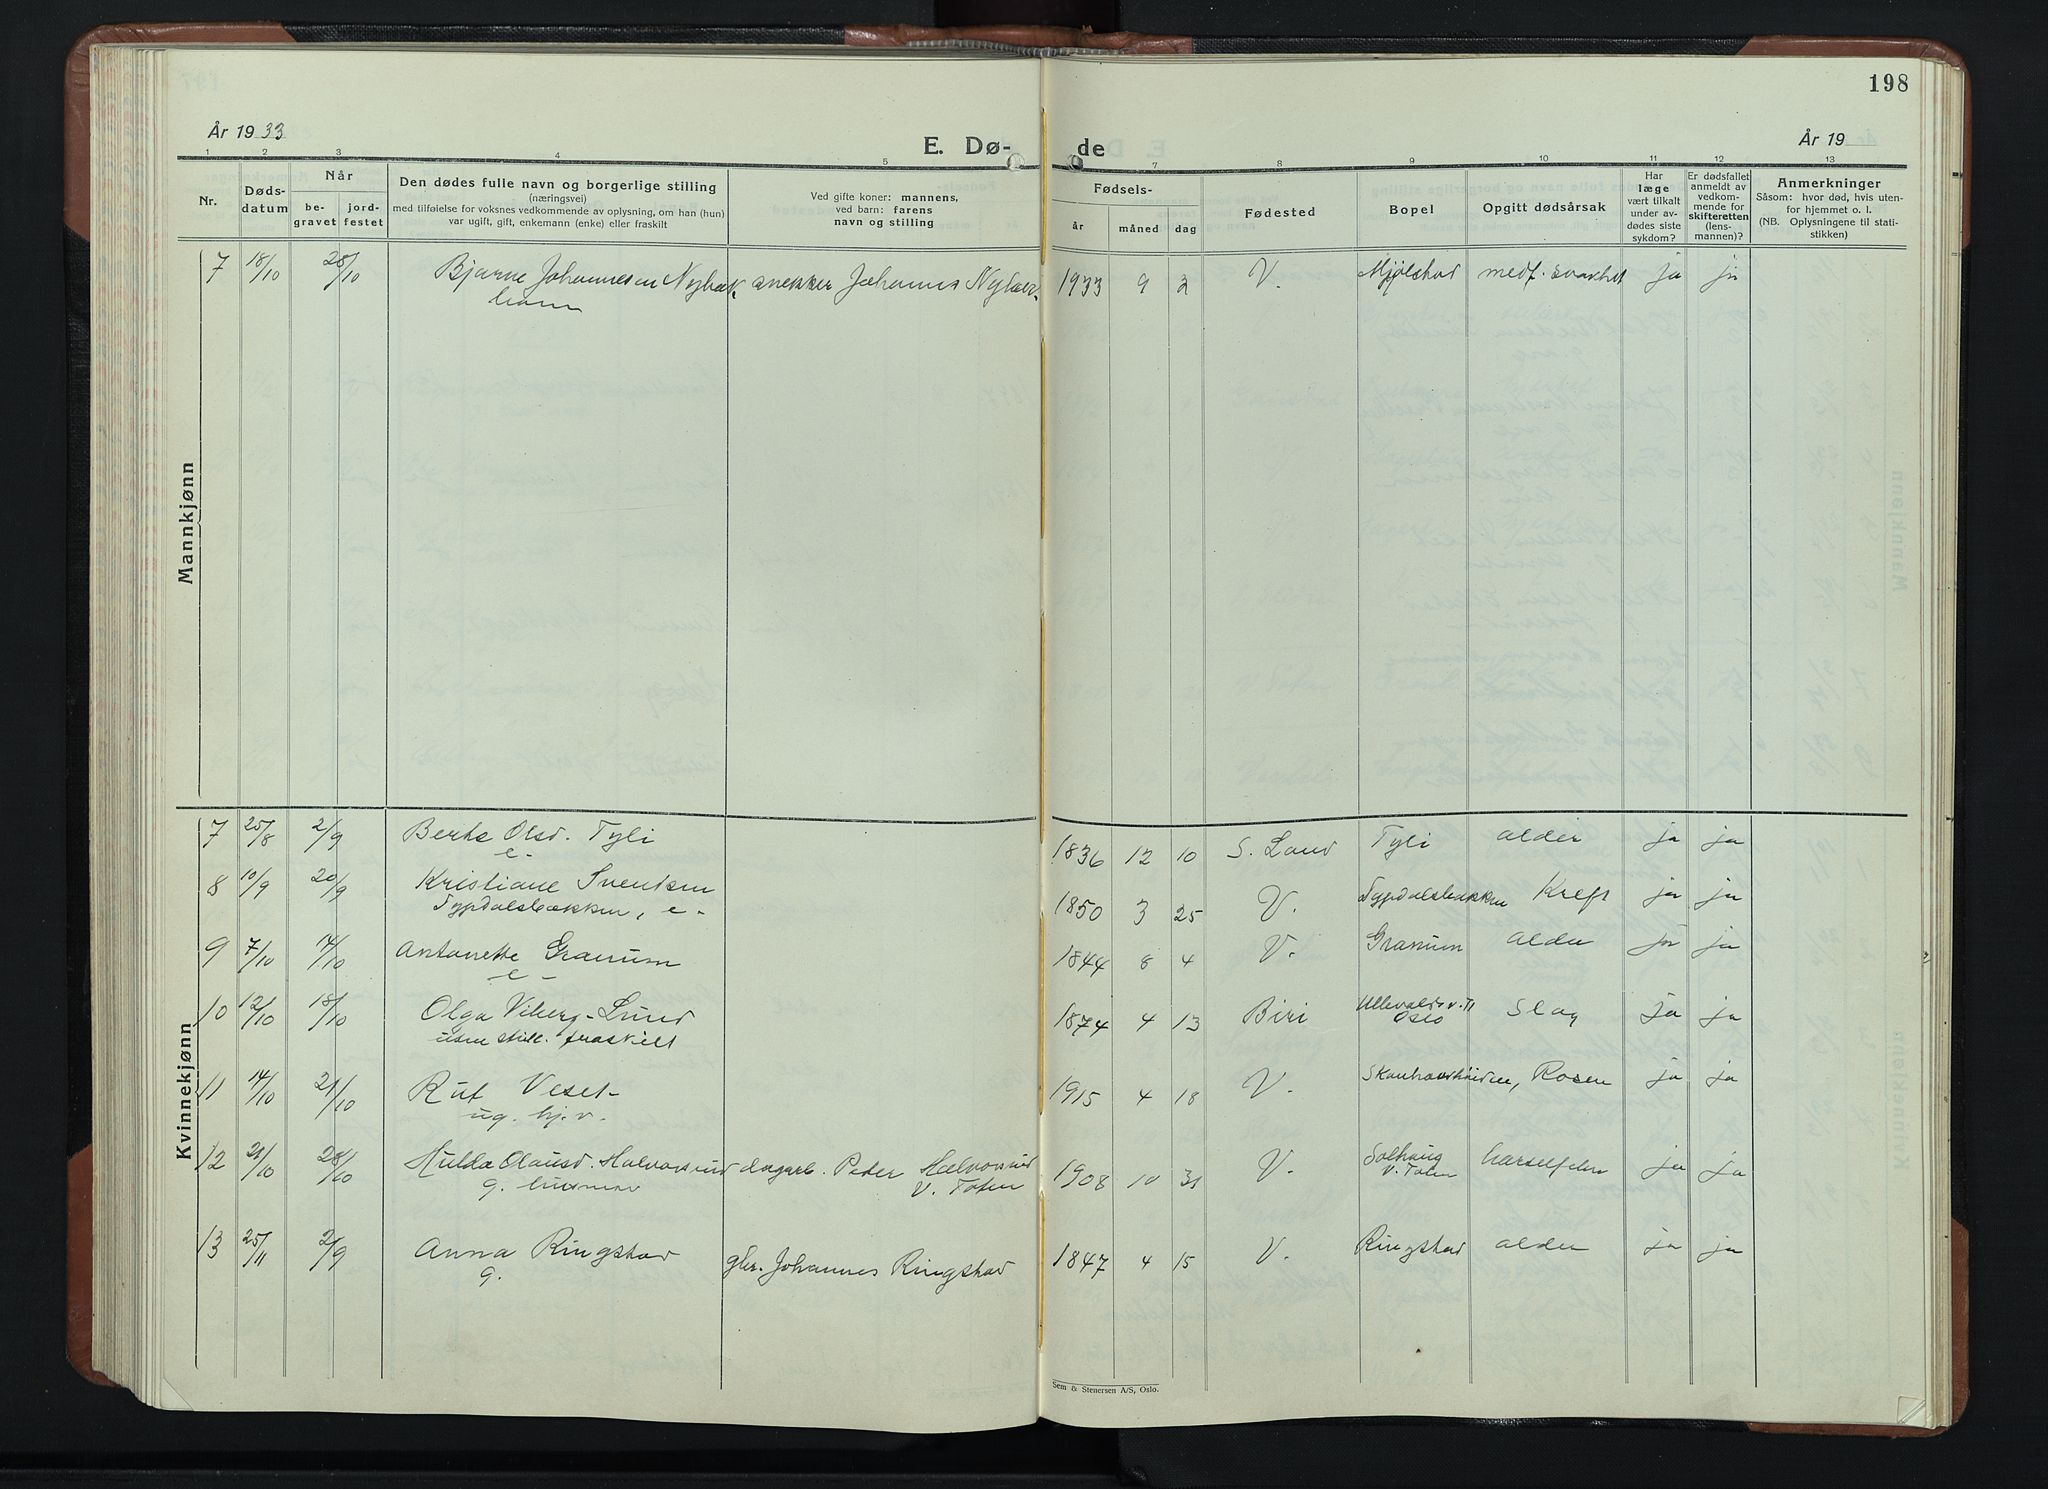 198
År 1933
E. Dø-
de
År 19
1 2 3 4 5
7 8 9 10 11 12 13
Nr.
Døds-
datum
Når
be-
gravet
jord-
festet
Den dødes fulle navn og borgerlige stilling
(næringsvei)
med tilføielse for voksnes vedkommende av oplysning, om han (hun)
var ugift, gift, enkemann (enke) eller fraskilt
Ved gifte koner: mannens,
ved barn: farens
navn og stilling
Fødsels-
år måned dag
Fødested
Bopel
Opgitt dødsårsak
Har
læge
vært tilkalt
under av-
dødes siste
sykdom?
Er dødsfallet
anmeldt av
vedkom-
mende for
skifteretten
(lens-
mannen)?
Anmerkninger
Såsom: hvor død, hvis uten-
for hjemmet o. l.
(NB. Oplysningene til stati-
stikken)
Mannkjønn
7 18/10 28/10 Bjarne Johannesen Nybakk, snekker Johannes 1933 9 2 V. Mjølstad medf. svakhet ja ja
barn
Kvinnekjønn
7 25/8 2/9 Berte Olsd. Tyli 1836 12 10 S. Land Tyli alder ja ja
e -
8 10/9 20/9 Kristiane Svendsen 1850 3 25 V. Sypdalsbakken Kreft ja ja
Sypdalsbakken, e -
9 7/10 14/10 Antonette Granum 1844 8 4 V. Granum alder ja ja
e -
10 12/10 18/10 Olga Viberg-Lund 1874 4 13 Biri Ullevålds v. 71 Slag ja ja
Oslo
uten still. fraskilt
11 14/10 21/10 Rut Veset 1915 4 18 V. Rosen ja ja
ug. hj.v.
12 21/10 28/10 Hulda Olausd. Halvorsrud dagarb. Peder Halvorsrud 1908 10 31 V. Solhaug barselfeber ja ja
V. Toten
g. husmor V. Toten
13 25/11 2/9 Anna Ringstad gbr. Johannes Ringstad 1847 4 15 V. Ringstad alder ja ja
g.
Sem & Stenersen A/S, Oslo.